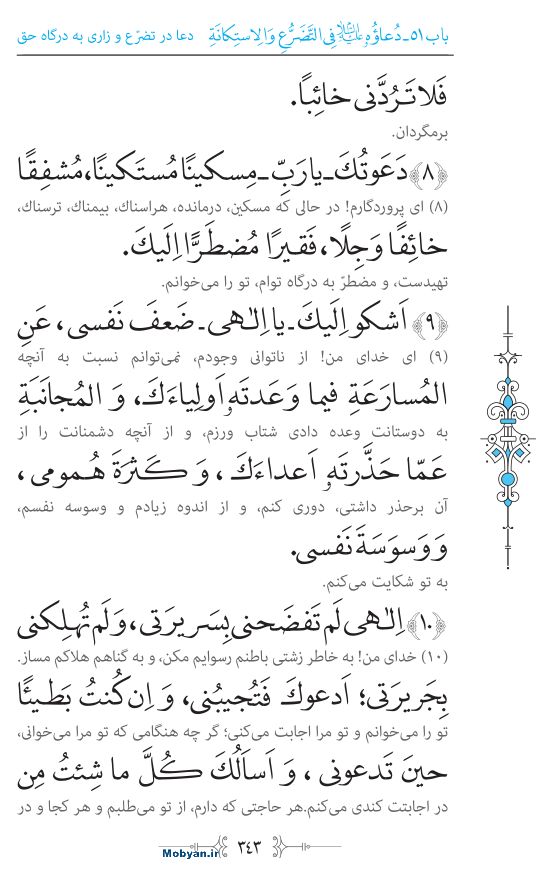 باب ۵۱ـ دُعاؤُهُ عليه‌السلام فِی التَّضَرُّعِ وَ الاِستِکانَةِ دعا در تضرّع و زاری به درگاه حق
فَلا تَرُدَّنی خائِباً.
برمگردان.
﴿۸﴾ دَعَوتُكَ ـ یا رَبِّ ـ مِسکینًا مُستَکینًا، مُشفِقًا
(۸) ای پروردگارم! در حالی که مسکین، درمانده، هراسناك، بیمناك، ترسناك،
خائِفًا وَجِلًا، فَقیرًا مُضطَرًّا اِلَیكَ.
تهیدست، و مضطرّ به درگاه توام، تو را می‌خوانم.
﴿۹﴾ اَشکو اِلَیكَ ـ یا اِلٰـهی ـ ضَعفَ نَفسی، عَنِ
(۹) ای خدای من! از ناتوانی وجودم، نمی‌توانم نسبت به آنچه
المُسارَعَةِ فیما وَعَدتَهٗ اَولِیاءَكَ، وَ المُجانَبَةِ
به دوستانت وعده دادی شتاب ورزم، و از آنچه دشمنانت را از
عَمّا حَذَّرتَهٗ اَعداءَكَ، وَ کَثرَةَ هُمومی،
آن برحذر داشتی، دوری کنم، و از اندوه زیادم و وسوسه نفسم،
وَ وَسوَسَةَ نَفسی.
به تو شکایت می‌کنم.
﴿۱۰﴾ اِلٰـهی لَم تَفضَحنی بِسَریرَتی، وَ لَم تُهلِکنی
(۱۰) خدای من! به خاطر زشتی باطنم رسوایم مکن، و به گناهم هلاکم مساز.
بِجَریرَتی؛ اَدعوكَ فَتُجیبُنی، وَ اِن کُنتُ بَطیئًا
تو را می‌خوانم و تو مرا اجابت می‌کنی؛ گر چه هنگامی که تو مرا می‌خوانی،
حینَ تَدعونی، وَ اَساَلُكَ کُلَّ ما شِئتُ مِن
در اجابتت کندی می‌کنم.هر حاجتی که دارم، از تو می‌طلبم و هر کجا و در
۳۴۳
Mobyan.ir